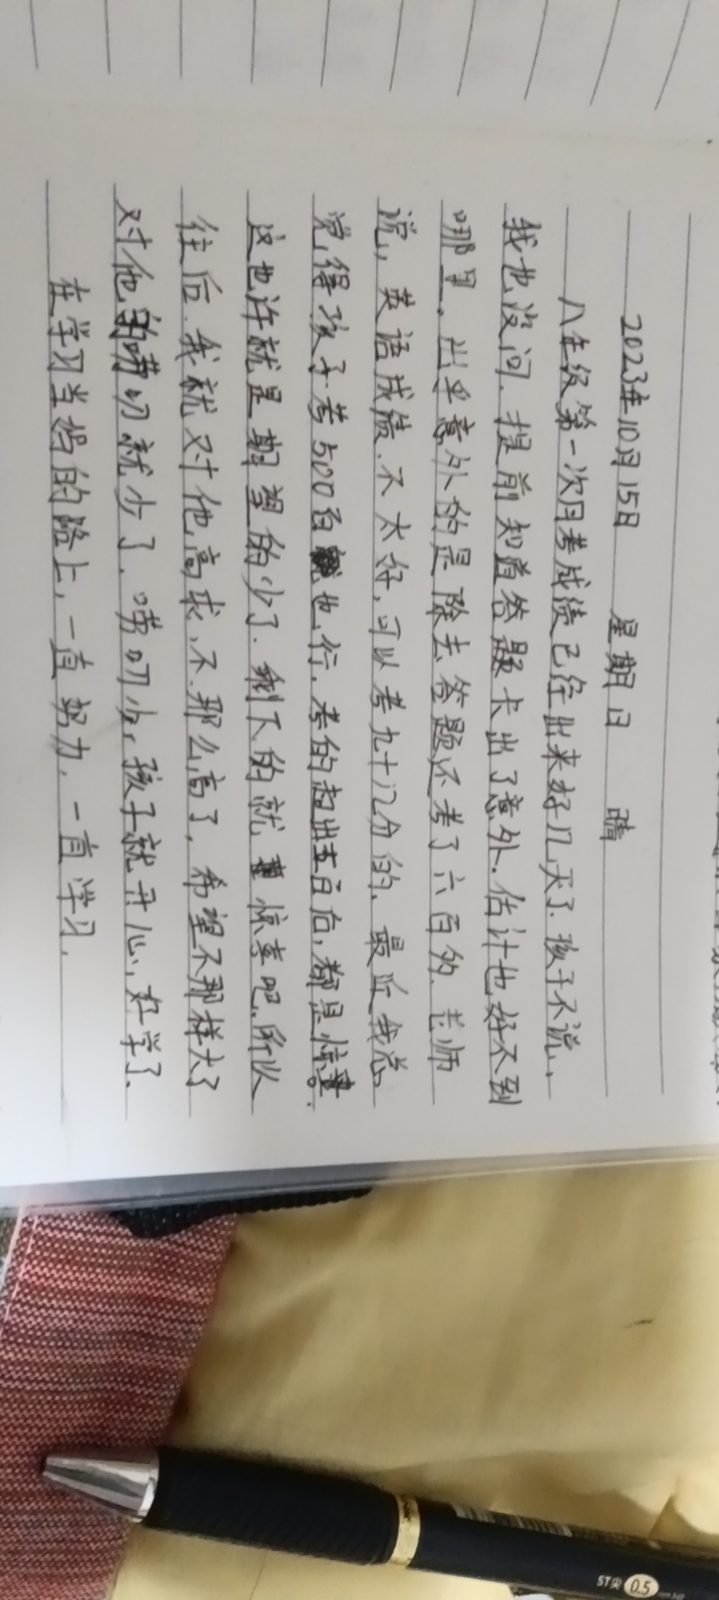 2023年10月15日 星期日 晴
八年级第一次月考成绩已经出来好几天了.孩子不说、
我也没问.提前知道答题卡出了意外.估计也好不到
哪里。出乎意外的是除去答题还考了六百的.老师
说，英语成绩.不太好，可以考九十几分的.最近我总
觉得孩子考500百也行.考的超出五百后,都是惊喜.
这也许就是期望的少了.剩下的就惊喜吧.所以
往后.我就对他高求.不那么高了，希望不那样大了
对他的唠叨就少了.唠叨少,孩子就开心,好学了、
在学习当妈的路上,一直努力,一直学习.
ST尖 0.5